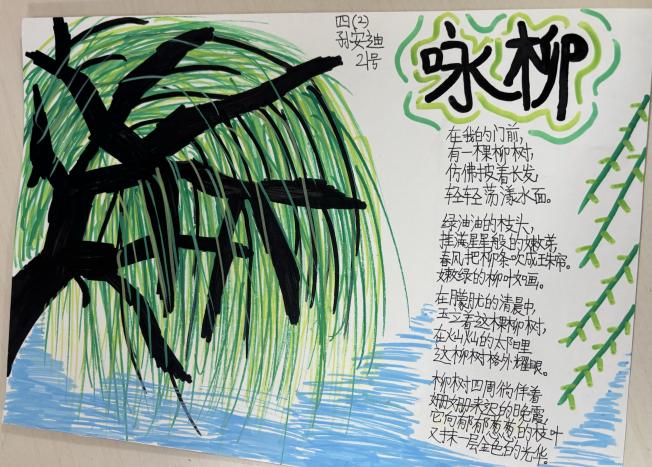 四(2)
孙安迪
21号
咏柳
在我的门前,
有一棵柳树,
仿佛披着长发,
轻轻荡漾水面。
绿油油的枝头,
挂满星星般的嫩芽,
春风把柳条吹成珠帘。
嫩绿的柳叶如画。
在朦胧的清晨中,
看这棵柳树,
在火灿灿的太阳里
这柳树格外耀眼。
柳树四周徜徉着
姗姗来迟的晚霞,
它向郁郁葱葱的枝叶
又抹一层金色的光华。